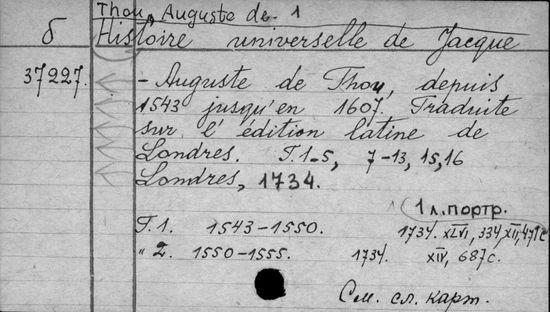 Thou, Auguste de. 1
б Histoire universelle de Jacque
37227. - Auguste de Thou, depuis
1543 jusqu'en 1607. Traduite
sur l'édition latine de
Londres. T.1-5, 7-13, 15,16
Londres, 1734.
1 л.портр.
T.1. 1543-1550. 1734. XLVI, 334, XII, 471 c
" 2. 1550-1555. 1734. XIV, 687c.
См. сл. карт.